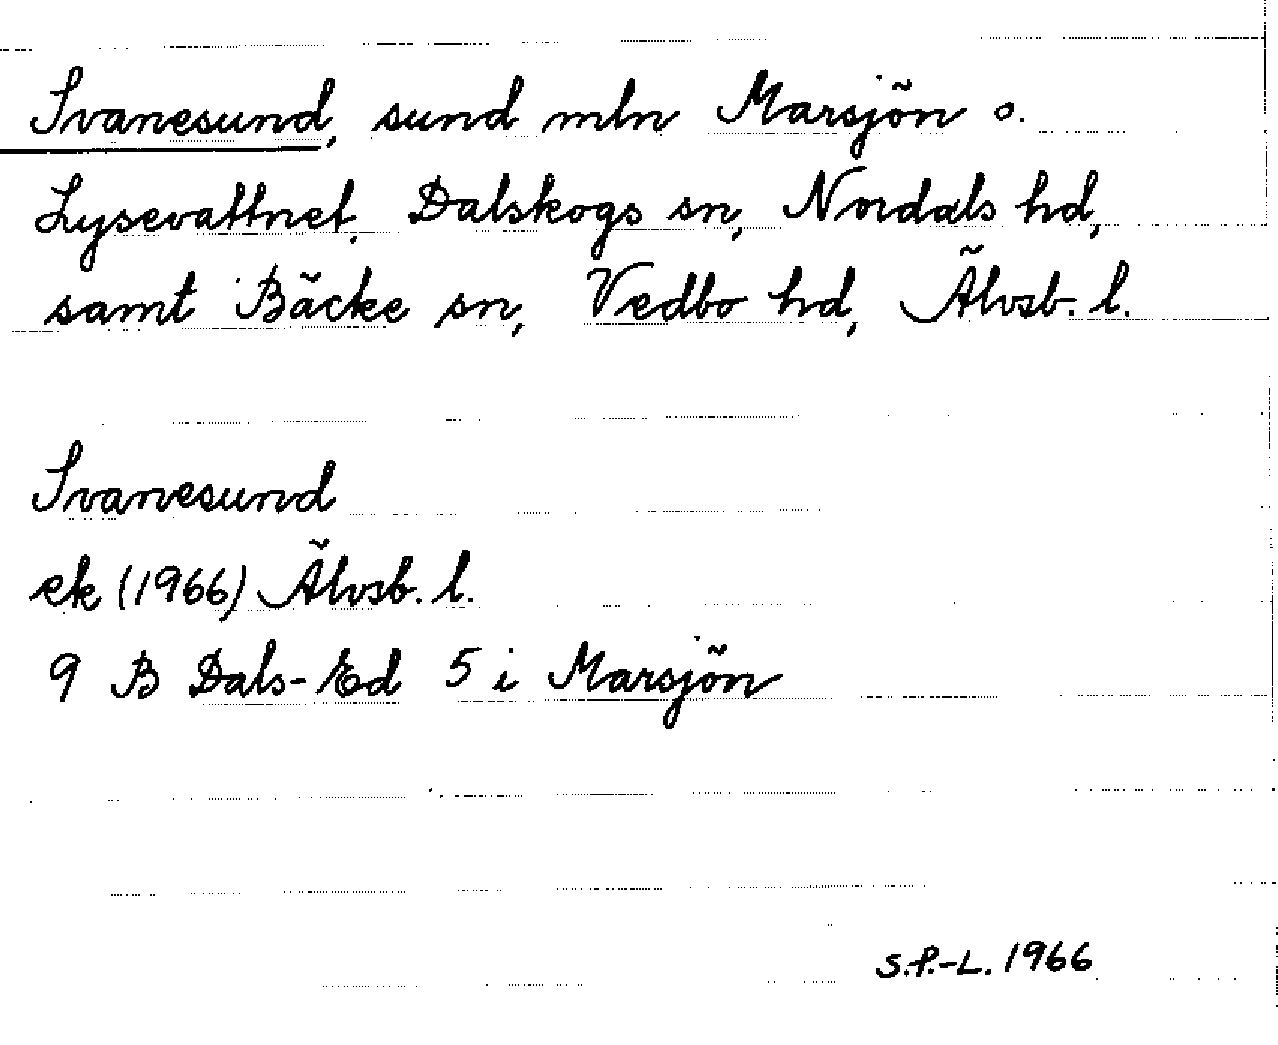 Svanesund, sund mln Marsjön o.
Lysevattnet, Dalskogs sn, Nordals hd,
samt Bäcke sn, Vedbo hd, Älvsb. l.
Svanesund
ek (1966) Älvsb. l.
9 B Dals-Ed 5 i Marsjön
S.P.-L. 1966